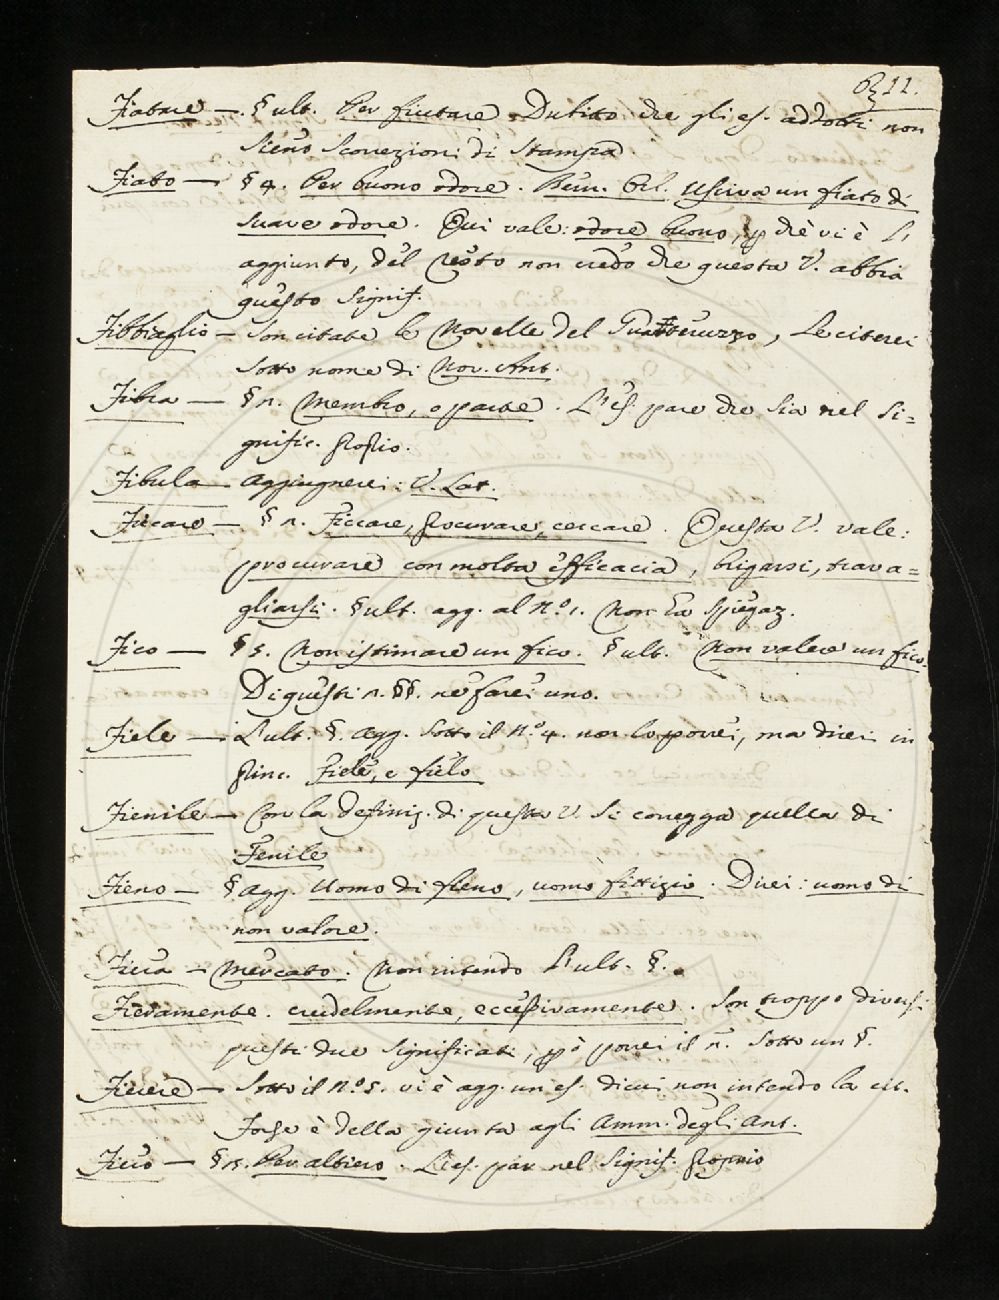 11.
Fiatare — § ult. Per fiutare Dubito che gli es. addotti non
sieno scorrezioni di stampa.
Fiato — § 4. Per buono odore. Bem. Usciva un fiato di
suave odore. Qui vale: odore buono, che vi è l'
aggiunto, del resto non credo che questa V. abbia
questo signif.
Fibbiaglio — Son citate le Novelle del Gualteruzzo, Le citerei
sotto nome di Nov. Ant.
Fibra — § n. Membro, o parte. L'es. pare che sia nel si=
gnific. proprio.
Fibula — Aggiugnerei: V. Lat.
Ficcare — § n. Ficcare, procurare, cercare. Questa V. vale:
procurare con molta efficacia, brigarsi, trava=
gliarsi. § ult. agg. al N.º 1. Non ha spiegaz.
Fico — § 5. Non istimare un fico. § ult. Non valere un fico.
Di questi n. §§. ne farei uno.
Fiele — L'ult. §. agg. sotto il N.º 4. non lo porrei, ma direi in
princ. Fiele, e fielo
Fienile — Con la definiz. di questa V. si corregga quella di
Fenile
Fieno — § agg. Uomo di fieno, uomo fittizio. Direi: uomo di
non valore.
Fiera — Mercato. Non intendo l'ult. §.
Fieramente. crudelmente, eccessivamente. Son troppo diversi
questi due significati, però porrei il n. sotto un §.
Fiere — Sotto il N.º 5. vi è agg. un es. di cui non intendo la cit.
Forse è della giunta agli Amm. degli Ant.
Fiero — § n. Per altiero. L'es. par nel signif. proprio